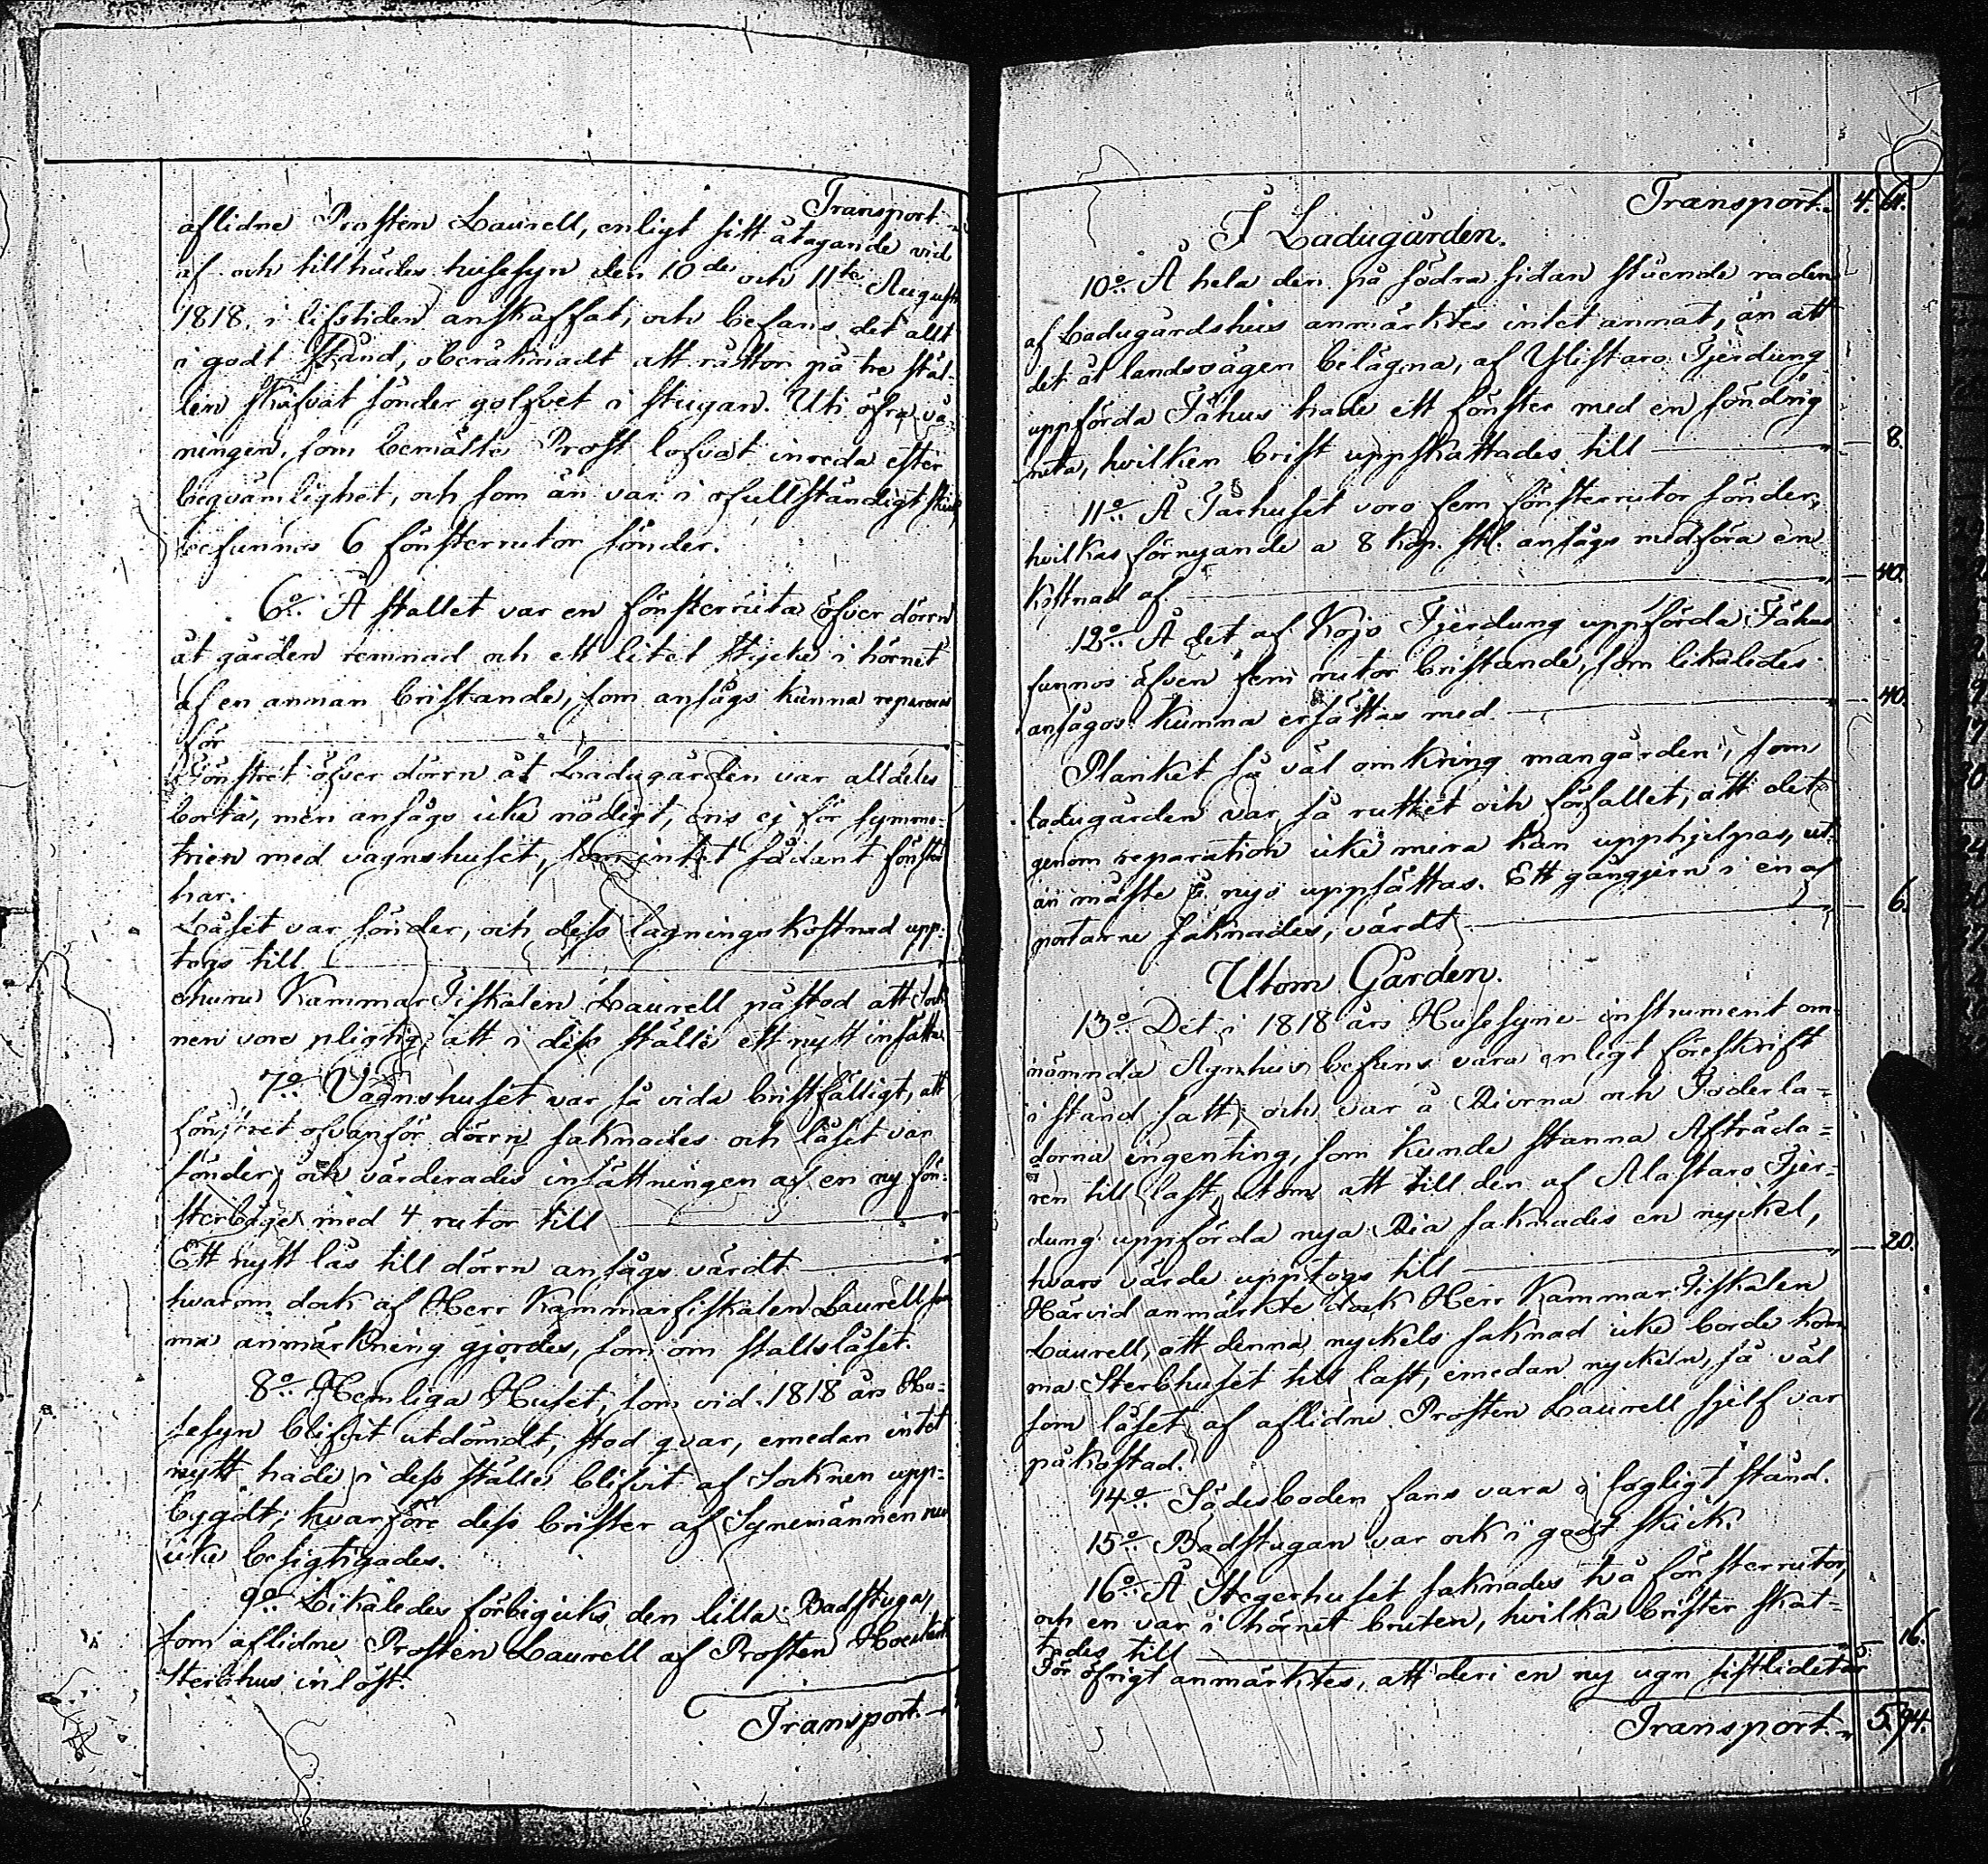 Transport.
aflidne Prosten Laurell, enligt sitt åtagande vid
af- och tillträdes husesyn den 10de och 11te Augusti
1818, i lifstiden anskaffat, och befans det allt
i godt stånd, oberäknadt att råttor på tre stäl-
len skafvat sönder golfvet i stugan. Uti öfra vå-
ningen, som bemälte Prost lofvat inreda efter
beqvämlighet, och som än var i ofullständigt skick
befunnos 6 fönsterrutor sönder.
6o. Å stallet var en fönsterruta öfver dörrn
åt gården remnad och ett litet stycke i hörnet
af en annan bristande, som ansågs kunna repareras
för
Fönstret öfver dörrn åt Ladugården var alldeles
borta, men ansågs icke nödigt, ens ej för symme-
trien med vagnshuset, som intet sådant fönster
har.
Låset var sönder, och dess lagningskostnad upp-
togs till
ehuru Kammar Fiskalen Laurell påstod att Sock
nen vore pligtig att i dess ställe ett nytt insätta.
7o. Vagnshuset var så vida bristfälligt, att
fönstret ofvanför dörrn saknades och låset var
sönder, och värderades insättningen af en ny fön-
sterbåge med 4 rutor till
Ett nytt lås till dörrn ansågs värdt
hvarom dock af Herr Kammarfiskalen Laurell sam
ma anmärkning gjordes, som om stallslåset.
8o. Hemliga Huset, som vid 1818 års Hu-
sesyn blifvit utdömdt, stod qvar, emedan intet
nytt hade i dess ställe blifvit af Socknen upp-
bygdt; hvarföre dess brister af Synemännen nu
icke besigtigades.
9o. Likaledes förbigicks den lilla Badstuga,
som aflidne Prosten Laurell af Prosten
Sterbhus inlöst.
Transport.
Transport. 4. 64.
I Ladugården.
10o. Å hela den på södra sidan stående raden
af Ladugårdshus anmärktes intet annat, än att
det åt landsvägen belägna, af Ylistaro Fjerdung
uppförda Fähus hade ett fönster med en söndrig
ruta, hvilken brist uppskattades till 8.
11o. Å Farhuset voro fem fönsterrutor sönder,
hvilkas förnyande a 8 kop. st. ansågs medföra en
kostnad af 40.
12o. Å det af Kojo Fjerdung uppförda Fähus
funnos äfven fem rutor bristande, som likaledes
ansågos kunna ersättas med 40.
Planket så väl omkring mangården, som
ladugården var så ruttet och förfallet, att det
genom reparation icke mera kan upphjelpas, ut
an måste å nyo uppsättas. Ett gångjern i en af
portarne saknades, värdt 6.
Utom Gården.
13o. Det i 1818 års Husesyne-instrument om-
nämnda Agnhus befans vara enligt föreskrift
i stånd satt; och var å Riorna och Foderla-
dorna ingenting, som kunde stanna Afträda-
ren till last, utom att till den af Alastaro Fjer-
dung uppförda nya Ria saknades en nyckel,
hvars värde upptogs till 20.
Härvid anmärkte dock Herr Kammar Fiskalen
Laurell, att denna nyckels saknad icke borde kom
ma Sterbhuset till last, emedan nyckeln, så väl
som låset af aflidne Prosten Laurell sjelf var
påkostad.
14o. Sädesboden fans vara i lagligt stånd.
15o. Badstugan var ock i godt skick.
16o. Å Stegerhuset saknades två fönsterrutor,
och en var i hörnet bruten, hvilka brister skat-
tades till 16.
För öfrigt anmärktes, att deri en ny ugn sistlidet år
Transport. 5. 94.